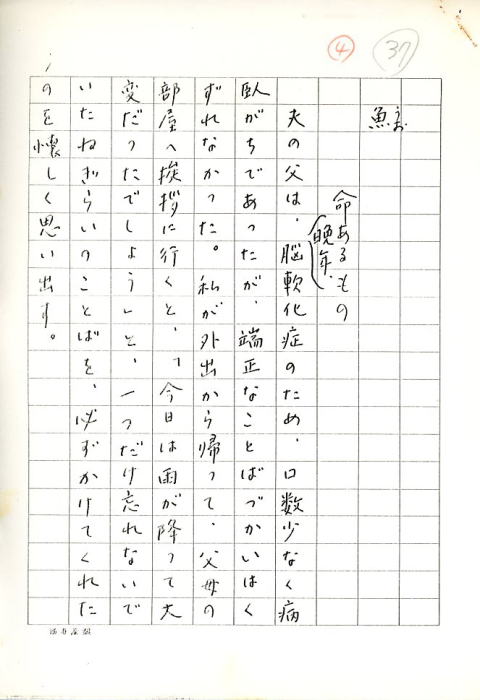 37
4
魚
命あるもの
晩年、
夫の父は、脳軟化症のため、口数少なく病
臥がちであったが、端正なことばづかいはく
ずれなかった。私が外出から帰って、父母の
部屋へ挨拶に行くと、「今日は雨が降って大
変だったでしょう」と、一つだけ忘れないで
いたねぎらいのことばを、必ずかけてくれた
のを懐しく思い出す。